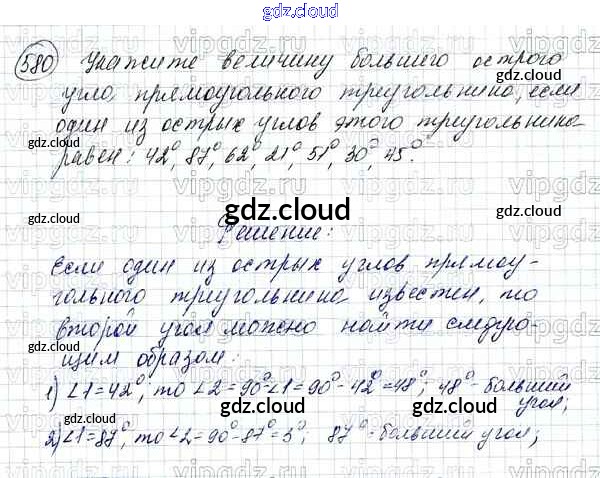 gdz.cloud
580 Укажите величину большего острого
угла прямоугольного треугольника, если
один из острых углов этого треугольника
равен: 42°, 87°, 62°, 21°, 51°, 30°, 45°.
Решение:
Если один из острых углов прямоу-
гольного треугольника известен, то
второй угол можно найти следую-
щим образом:
1) ∠1=42°, то ∠2=90°-∠1=90°-42°=48°; 48°-больший
угол;
2) ∠1=87°, то ∠2=90°-87°=3°; 87°-больший угол;